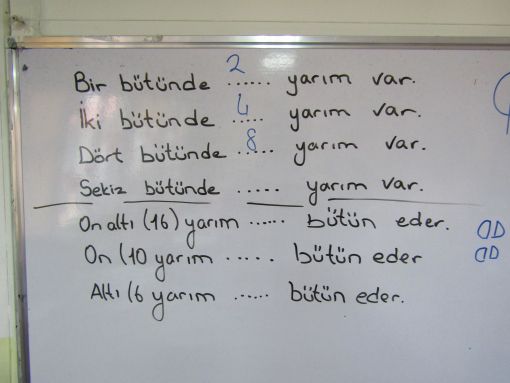 Bir bütünde ..2.... yarım var.
İki bütünde ..4... yarım var.
Dört bütünde .8.... yarım var.
Sekiz bütünde ..... yarım var.
On altı (16) yarım ...... bütün eder.
On (10 yarım ..... bütün eder
Altı (6 yarım ...... bütün eder.